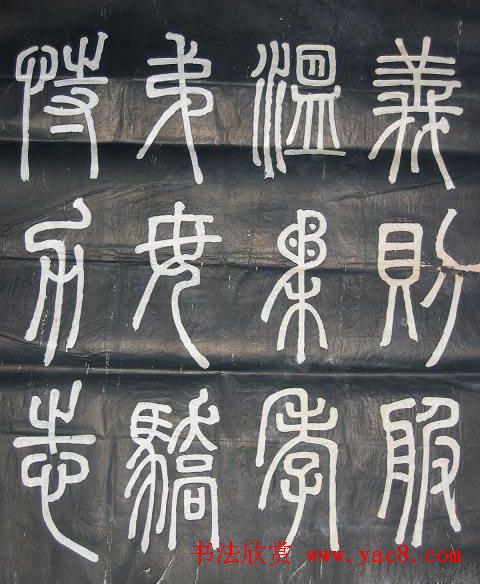 義則服
溫柔孝
弟毋驕
恃力志
书法欣赏 www.yac8.com